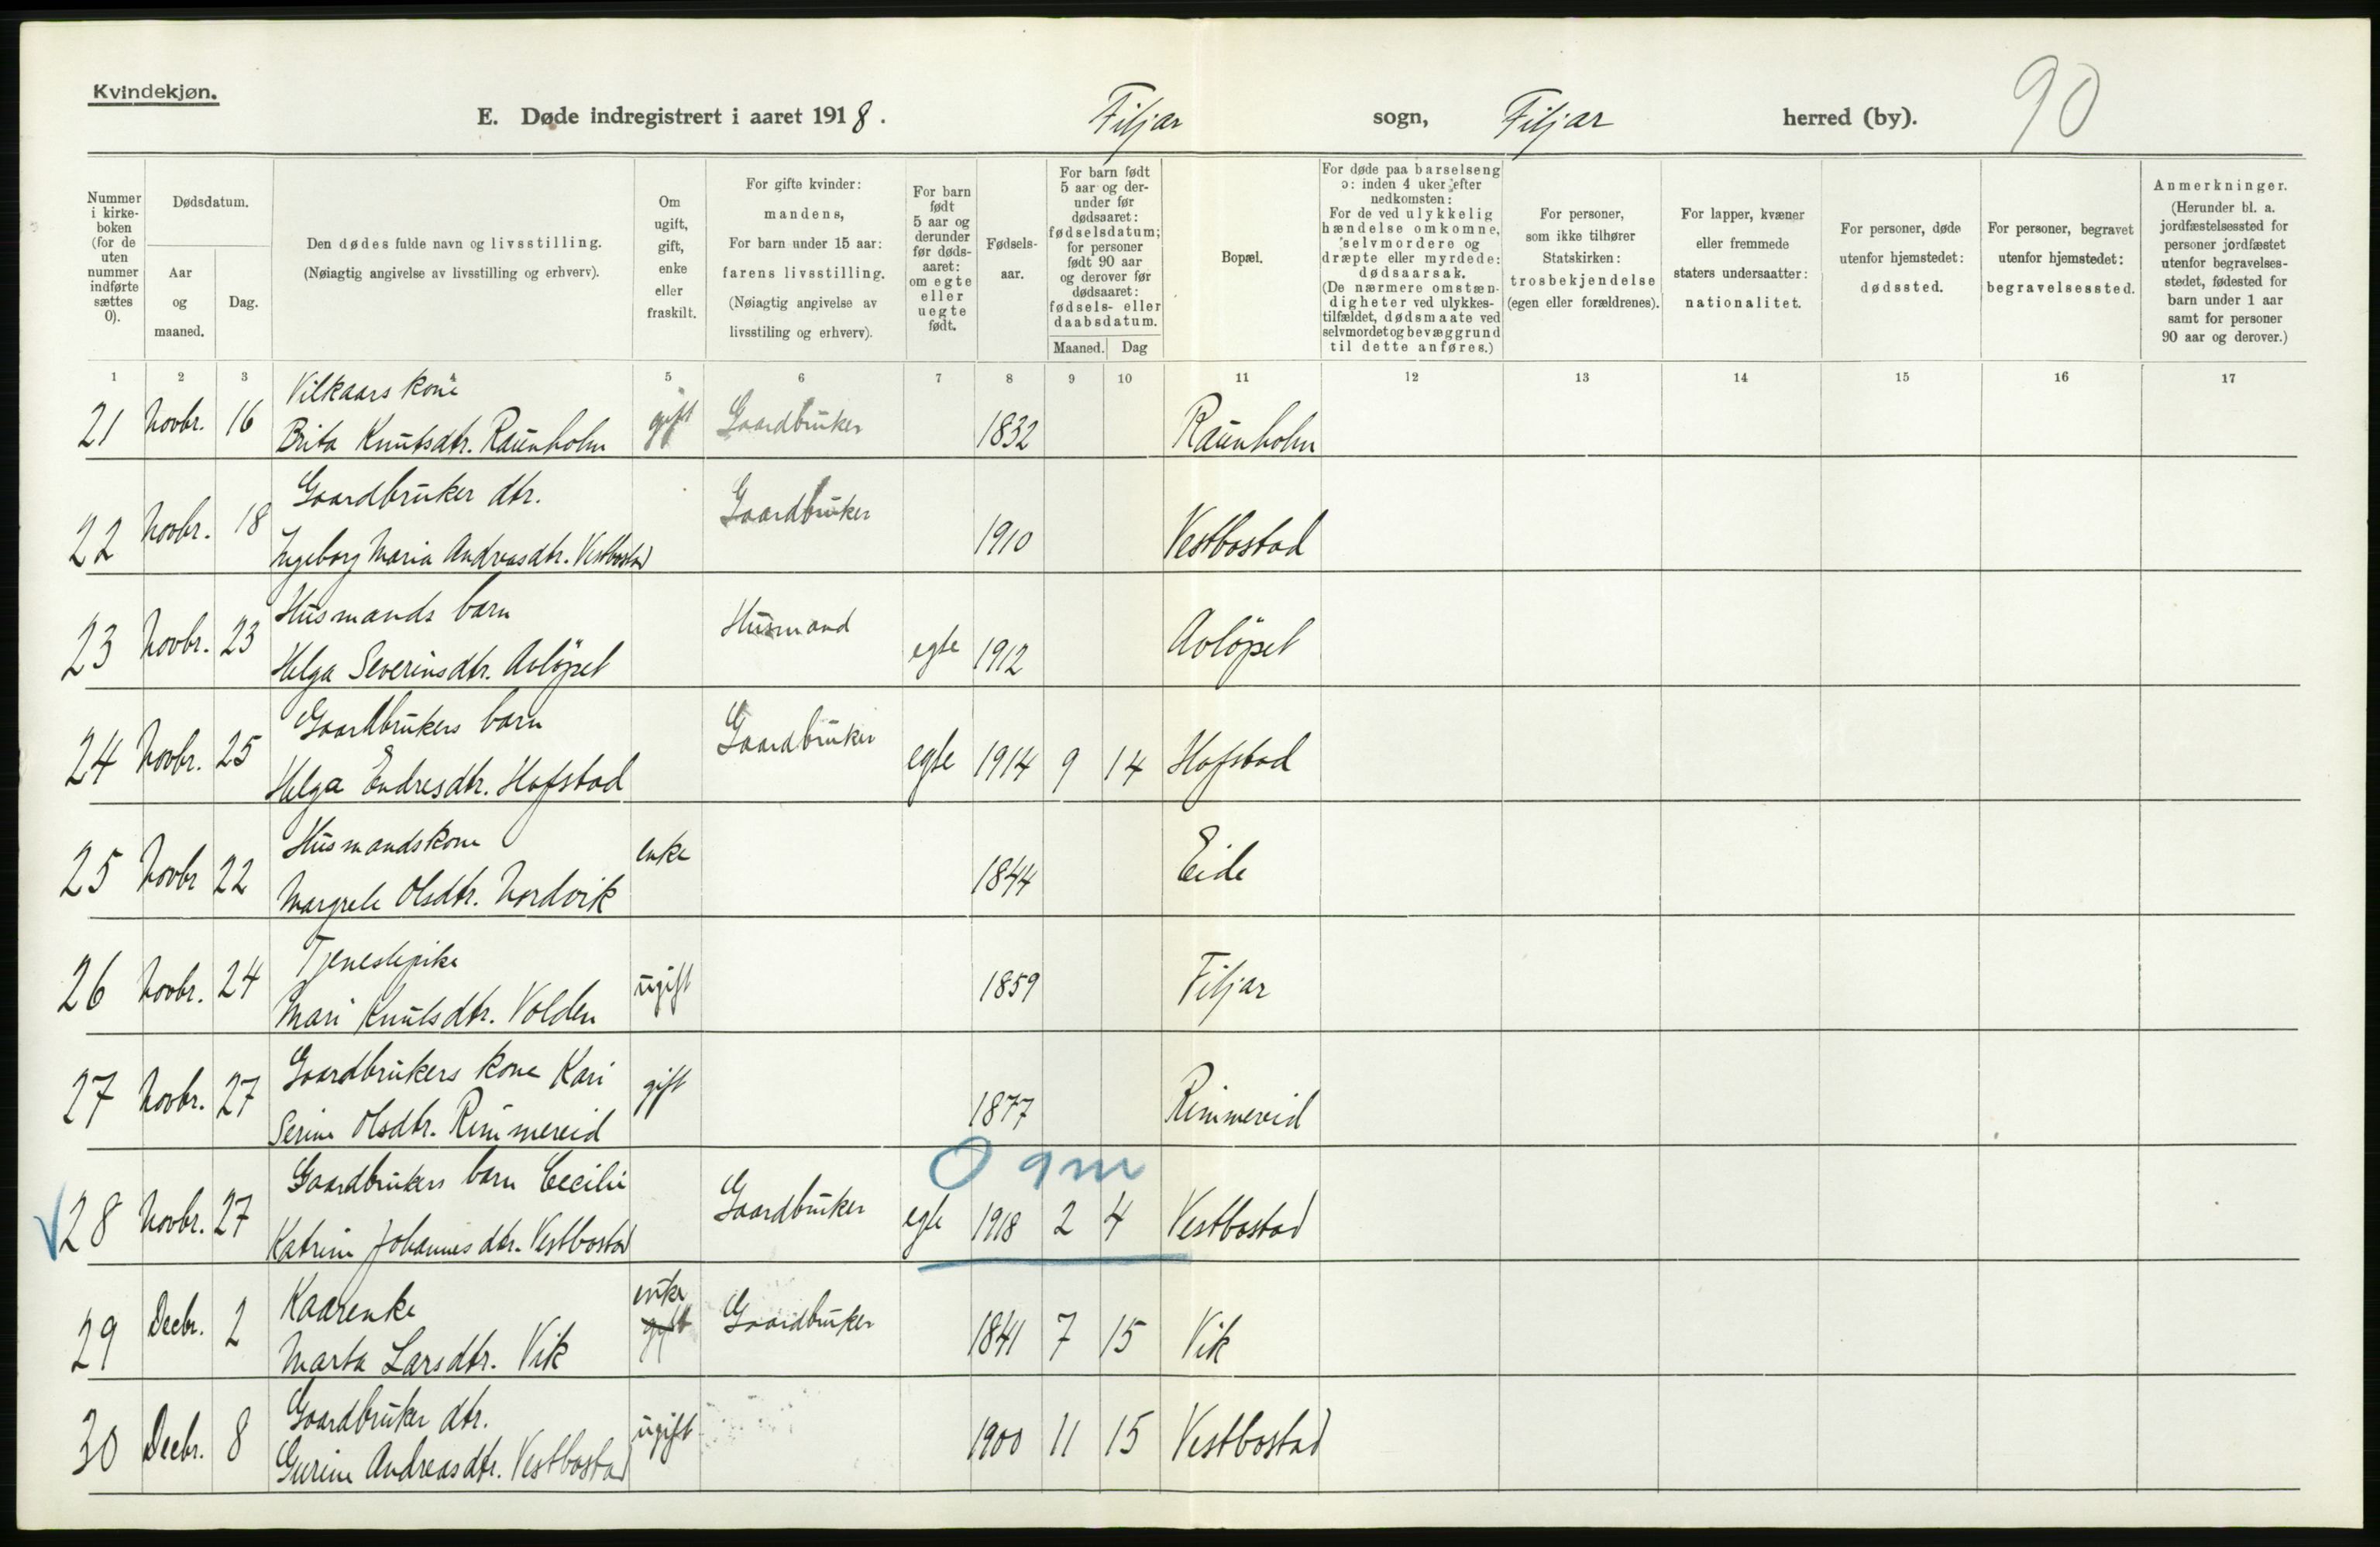 Kvindekjøn.
E. Døde indregistrert i aaret 1918. Fitjar sogn, Fitjar herred (by). 90
Nummer i kirke- boken (for de uten nummer indførte sættes 0).
Dødsdatum.
Aar og maaned.
Dag.
Den dødes fulde navn og livsstilling.
(Nøiagtig angivelse av livsstilling og erhverv).
Om ugift, gift, enke eller fraskilt.
For gifte kvinder: mandens,
For barn under 15 aar: farens livsstilling.
(Nøiagtig angivelse av livsstiling og erhverv).
For barn født 5 aar og derunder før døds- aaret: om egte eller uegte født.
Fødsels- aar.
For barn født 5 aar og der- under før dødsaaret: fødselsdatum; for personer født 90 aar og derover før dødsaaret: fødsels- eller daabsdatum.
Maaned. Dag
Bopæl.
For døde paa barselseng ɔ: inden 4 uker efter nedkomsten:
For de ved ulykkelig hændelse omkomne, selvmordere og dræpte eller myrdede: dødsaarsak.
(De nærmere omstæn- digheter ved ulykkes- tilfældet, dødsmaate ved selvmordet og bevæggrund til dette anføres.)
For personer, som ikke tilhører Statskirken: trosbekjendelse (egen eller forældrenes).
For lapper, kvæner eller fremmede staters undersaatter: nationalitet.
For personer, døde utenfor hjemstedet: dødssted.
For personer, begravet utenfor hjemstedet: begravelsessted.
Anmerkninger.
(Herunder bl. a. jordfæstelsessted for personer jordfæstet utenfor begravelses- stedet, fødested for barn under 1 aar samt for personer 90 aar og derover.)
1 2 3 5 6 7 8 9 10 11 12 13 14 15 16 17
Vilkaars kone
21 Novbr. 16 Brita Knutsdtr. Raunholm gift Gaardbruker 1832 Raunholm
Gaardbruker dtr.
22 Novbr. 18 Ingeborg Maria Andreasdtr. Vestbostad Gaardbruker 1910 Vestbostad
Husmands barn
23 Novbr. 23 Helga Severinsdtr. Avløpet Husmand egte 1912 Avløpet
Gaardbrukers barn
24 Novbr. 25 Helga Endresdtr. Hafstad Gaardbruker egte 1914 9 14 Hafstad
Husmandskone
25 Novbr 22 Margrete Olsdtr. Nordvik enke 1844 Eide
Tjenestepike
26 Novbr. 24 Mari Knutsdtr. Volden ugift 1859 Fitjar
Gaardbrukers kone Kari
27 Novbr. 27 Serine Olsdtr. Rimmereid gift 1877 Rimmereid
0 9 m
Gaardbrukers barn Cecilie
28 Novbr. 27 Katrine Johannesdtr. Vestbostad Gaardbruker egte 1918 2 4 Vestbostad
Kaarenke enke
29 Decbr. 2 Marta Larsdtr. Vik gift Gaardbruker 1841 7 15 Vik
Gaardbruker dtr.
30 Decbr. 8 Gurine Andreasdtr. Vestbostad ugift 1900 11 15 Vestbostad